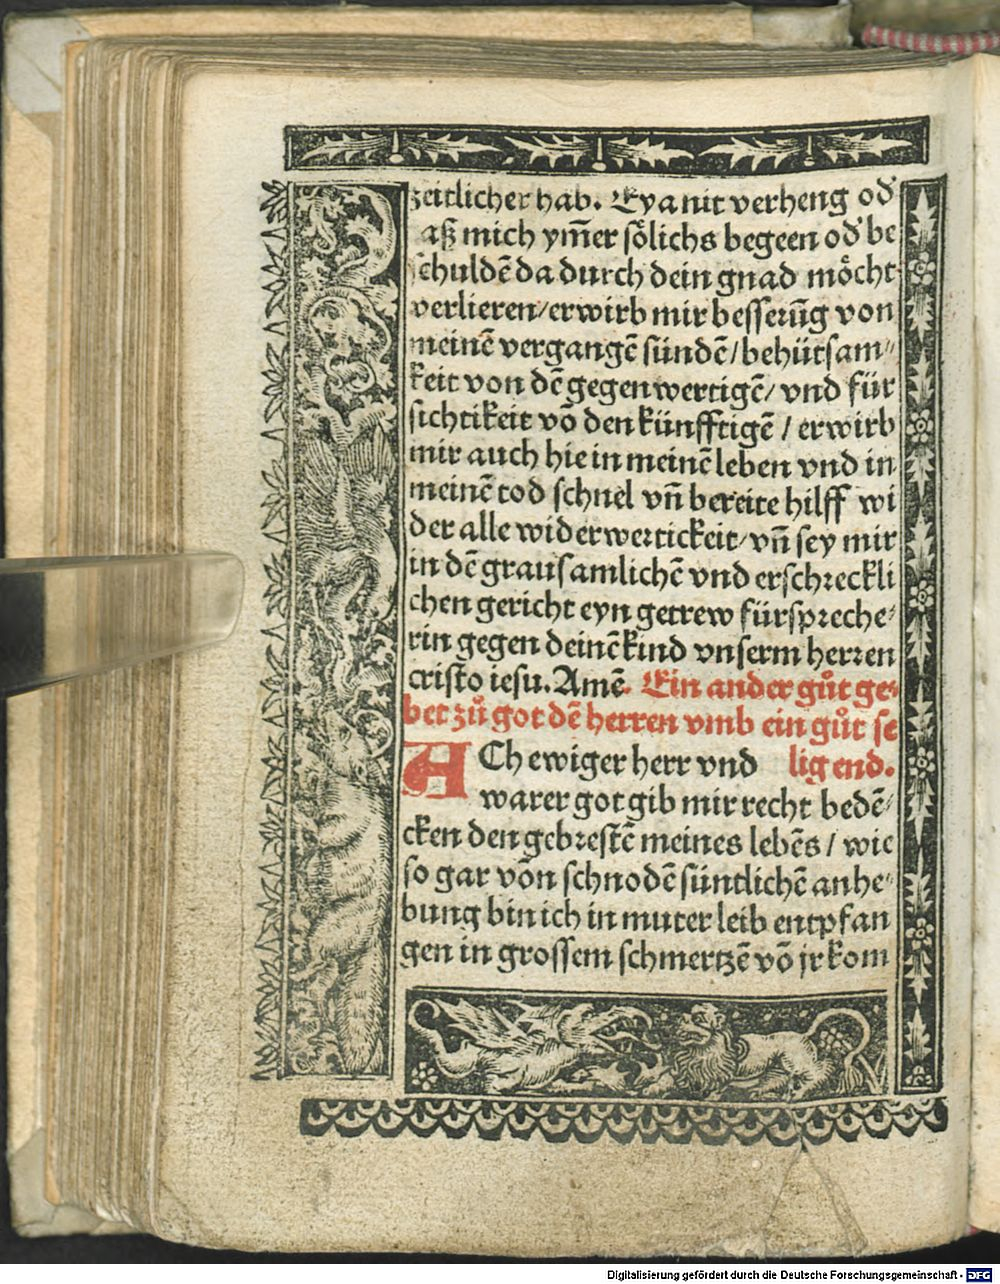 zeitlicher hab. Eya nit verheng od̕
aß mich ym̄er sölichs begeen od̕ be
schuldē da durch dein gnad möcht
verlieren/erwirb mir besserūg von
meinē vergangē sündē/behütsam⸗
keit von dē gegenwertigē/ vnd für
sichtikeit vō den künfftigē / erwirb
mir auch hie in meinē leben vnd in
meinē tod schnel vn̄ bereite hilff wi
der alle widerwertickeit/vn̄ sey mir
in dē grausamlichē vnd erschreckli
chen gericht eyn getrew fürspreche⸗
rin gegen deinē kind vnserm herren
cristo iesu. Amē. Ein ander gůt ge⸗
bet zů got dē herren vmb ein gůt se
ACh ewiger herr vnd lig end.
warer got gib mir recht bedē⸗
cken den gebrestē meines lebēs / wie
so gar vōn schnodē süntlichē anhe⸗
bung bin ich in muter leib entpfan
gen in grossem schmertzē vō jr kom
Digitalisierung gefördert durch die Deutsche Forschungsgemeinschaft - DFG